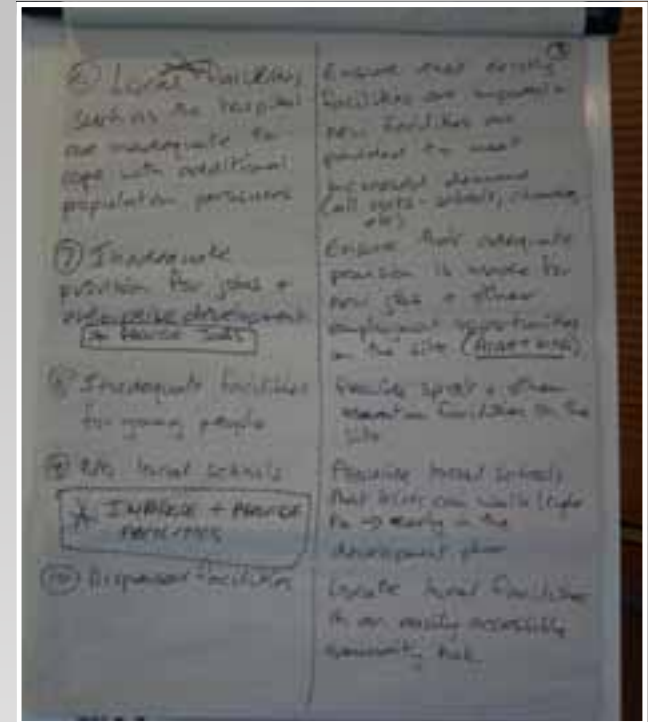 ⑥ Local facilities
such as the hospital
are inadequate to
cope with additional
population pressures
⑦ Inadequate
provision for jobs +
enterprise development
* PROVIDE JOBS
⑧ Inadequate facilities
for young people
⑨ No local schools
* IMPROVE + PROVIDE
FACILITIES
⑩ Dispersed facilities
③
Ensure that existing
facilities are expanded +
new facilities are
provided to meet
increased demand
(all sorts - schools, churches,
etc)
Ensure that adequate
provision is made for
new jobs + other
employment opportunities
on the site
Provide sport + other
facilities on the
site
Provide local schools
that kids can walk/cycle
to → early in the
development plan
Locate local facilities
in an easily accessible
community hub